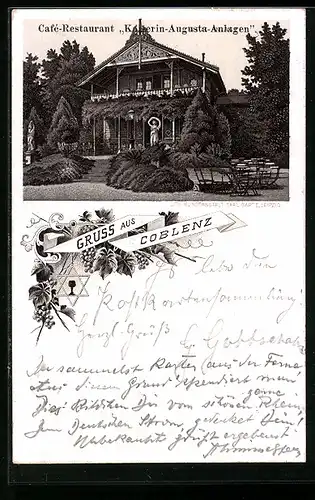 Café-Restaurant „Kaiserin-Augusta-Anlagen"
GRUSS AUS COBLENZ
Es lebe die
Postkartensammlung!
Herzl. Gruß
Du sammelst Karten aus der Ferne
Aus diesem Grund spendiert man
gerne
Dies Bildchen Dir vom schönen Rhein
Zum Deutschen Strom,
Unbekannter grüßt ergebenst